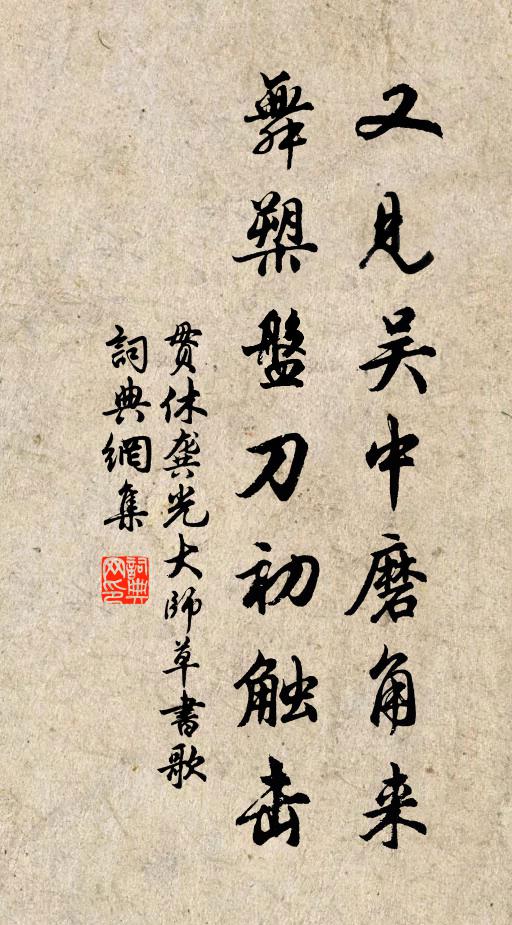 又見吴中磨角来
舞槊盤刀初触击
贯休龚光大師草書歌
詞典網集
詞典网印